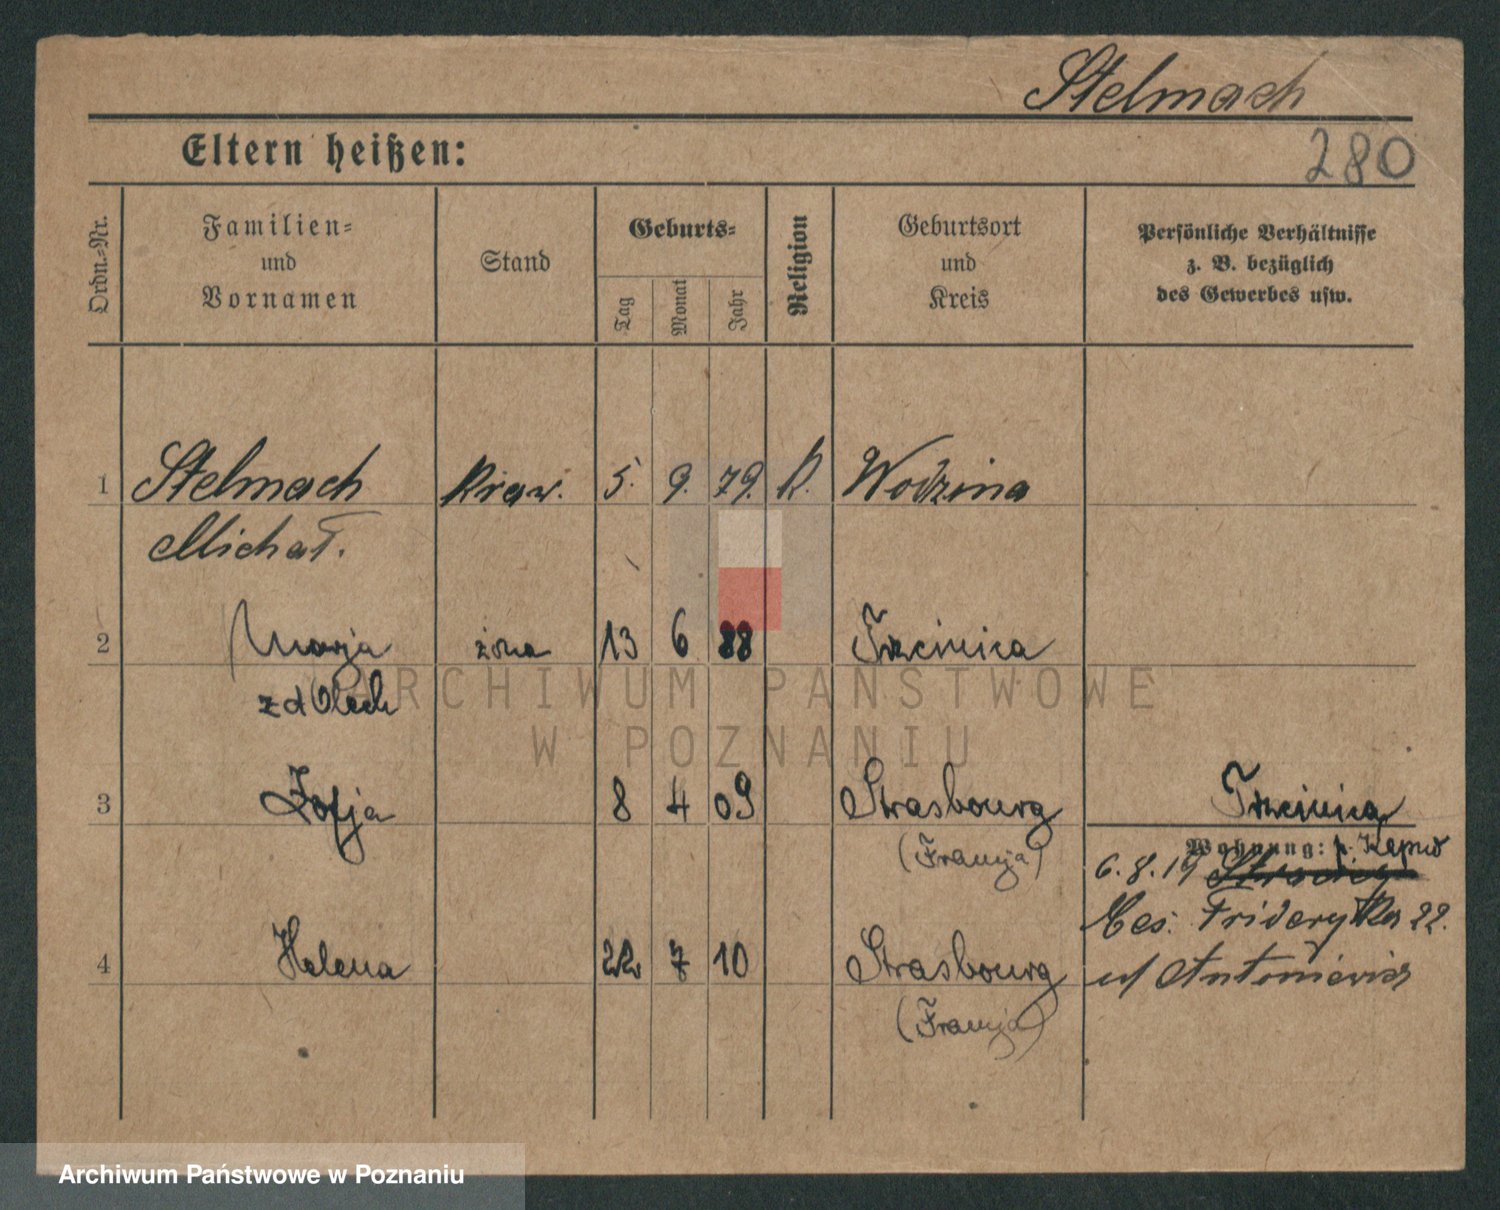 Stelmach
Eltern heißen:
280
Ordn.-Nr.
Familien-
und
Vornamen
Stand
Geburts-
Tag
Monat
Jahr
Religion
Geburtsort
und
Kreis
Persönliche Verhältnisse
z. B. bezüglich
des Gewerbes usw.
1 Stelmach Kraw. 5. 9. 79. K. Wodzina
Michał.
2 Marja żona 13 6 88 Trzcinica
z d Olech
ARCHIWUM PAŃSTWOWE
W POZNANIU
3 Zofja 8 4 09 Strasbourg Trzcinica
Wohnung: p. Kępno
(Francja)
6.8.19
Ces. Fryderyka 22.
4 Helena 22 7 10 Strasbourg u/ Antoniewicz
(Francja)
Archiwum Państwowe w Poznaniu